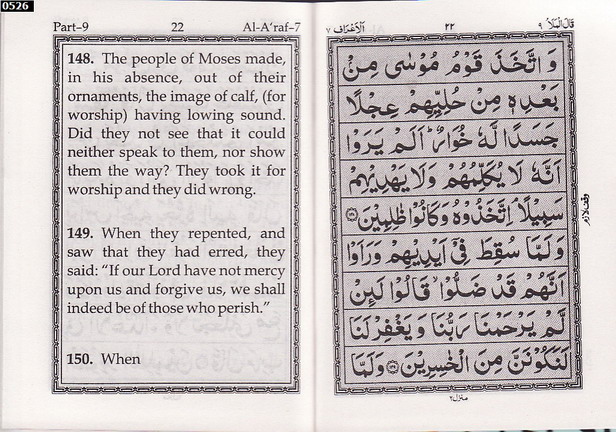 0526
Part-9 22 Al-A'raf-7
148. The people of Moses made,
in his absence, out of their
ornaments, the image of calf, (for
worship) having lowing sound.
Did they not see that it could
neither speak to them, nor show
them the way? They took it for
worship and they did wrong.
149. When they repented, and
saw that they had erred, they
said: “If our Lord have not mercy
upon us and forgive us, we shall
indeed be of those who perish.”
150. When
الاعراف ٧ ٢٢ قال الملا ٩
وَ اتَّخَذَ قَوْمُ مُوْسٰى مِنْۢ
بَعْدِهٖ مِنْ حُلِیِّهِمْ عِجْلًا
جَسَدًا لَّهٗ خُوَارٌ ؕ اَلَمْ یَرَوْا
اَنَّهٗ لَا یُكَلِّمُهُمْ وَلَا یَهْدِیْهِمْ
سَبِیْلًا ۘ اِتَّخَذُوْهُ وَكَانُوْا ظٰلِمِیْنَ ١٤٨
وَلَمَّا سُقِطَ فِیْۤ اَیْدِیْهِمْ وَرَاَوْا
اَنَّهُمْ قَدْ ضَلُّوْا ۙ قَالُوْا لَىِٕنْ
لَّمْ یَرْحَمْنَا رَبُّنَا وَیَغْفِرْلَنَا
لَنَكُوْنَنَّ مِنَ الْخٰسِرِیْنَ ١٤٩ وَلَمَّا
وقف لازم
منزل ٢